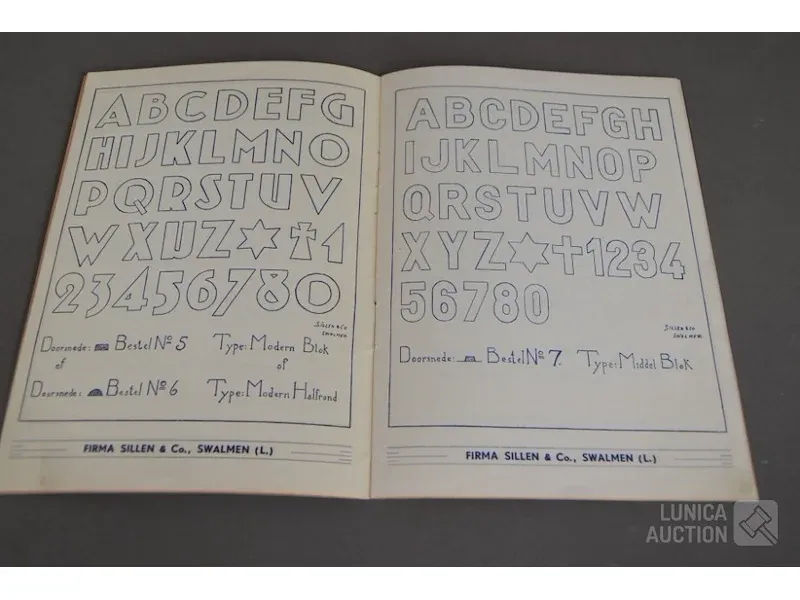 ABCDEFG
HIJKLMNO
PQRSTUV
WXYZ✡✝1
23456780
SILLEN & Co
SWALMEN
Doorsnede: Bestel No 5 Type: Modern Blok
of of
Doorsnede: Bestel No 6 Type: Modern Halfrond
FIRMA SILLEN & Co., SWALMEN (L.)
ABCDEFGH
IJKLMNOP
QRSTUVW
XYZ✡✝1234
56780
SILLEN & Co
SWALMEN
Doorsnede: Bestel No 7. Type: Middel Blok
FIRMA SILLEN & Co., SWALMEN (L.)
LUNICA
AUCTION